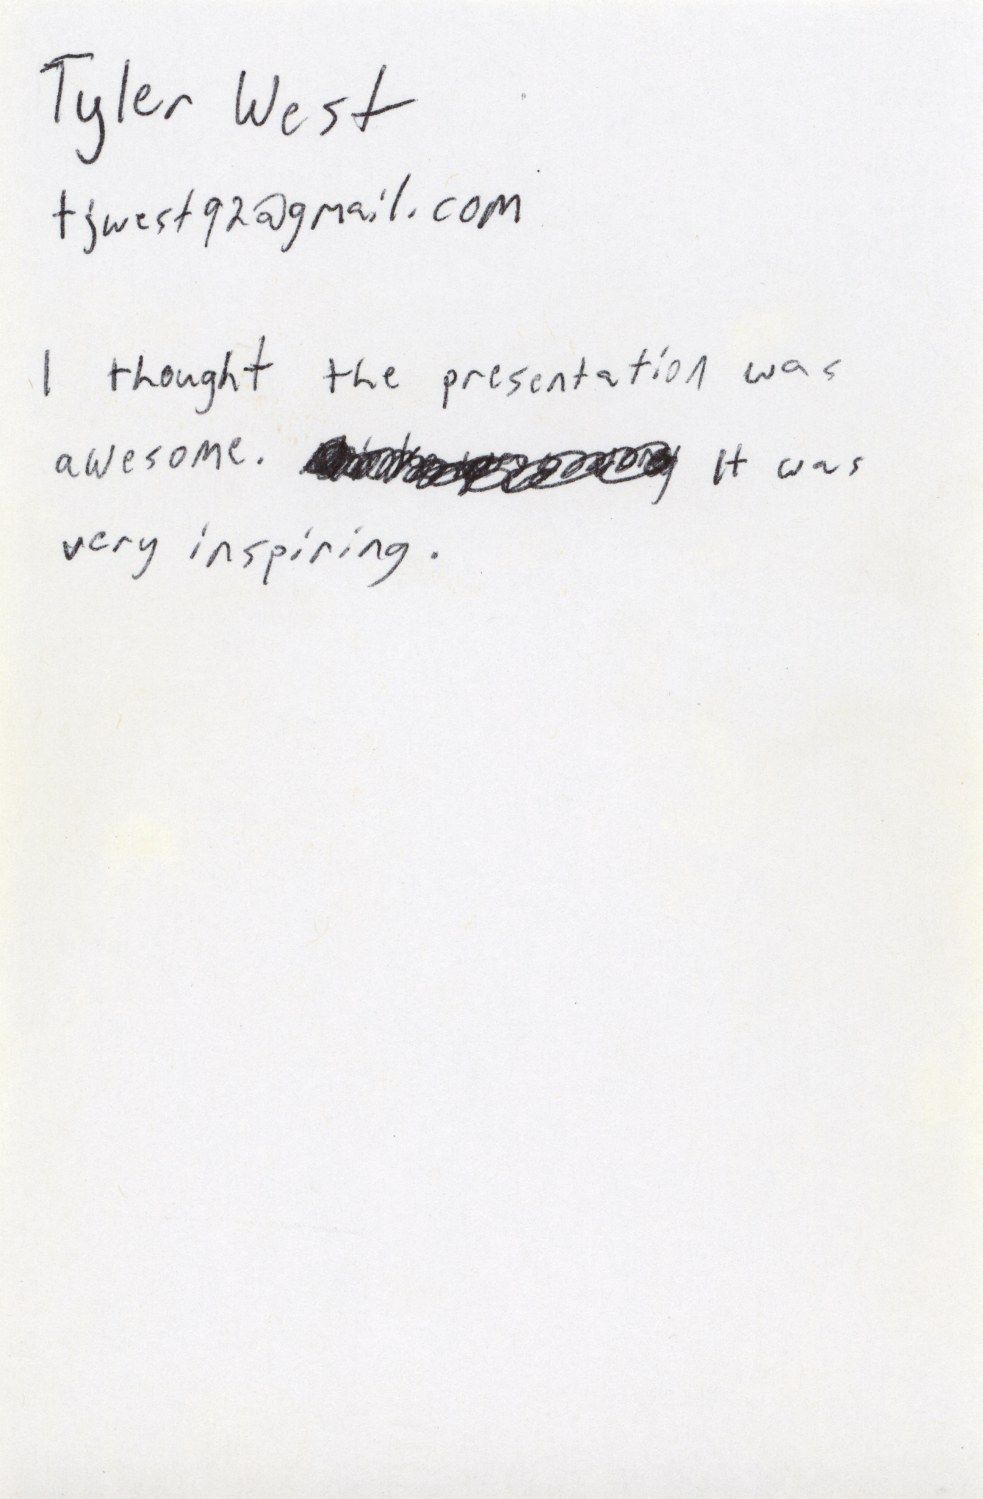 Tyler West
tjwest92@gmail.com
I thought the presentation was
awesome. It was
very inspiring.